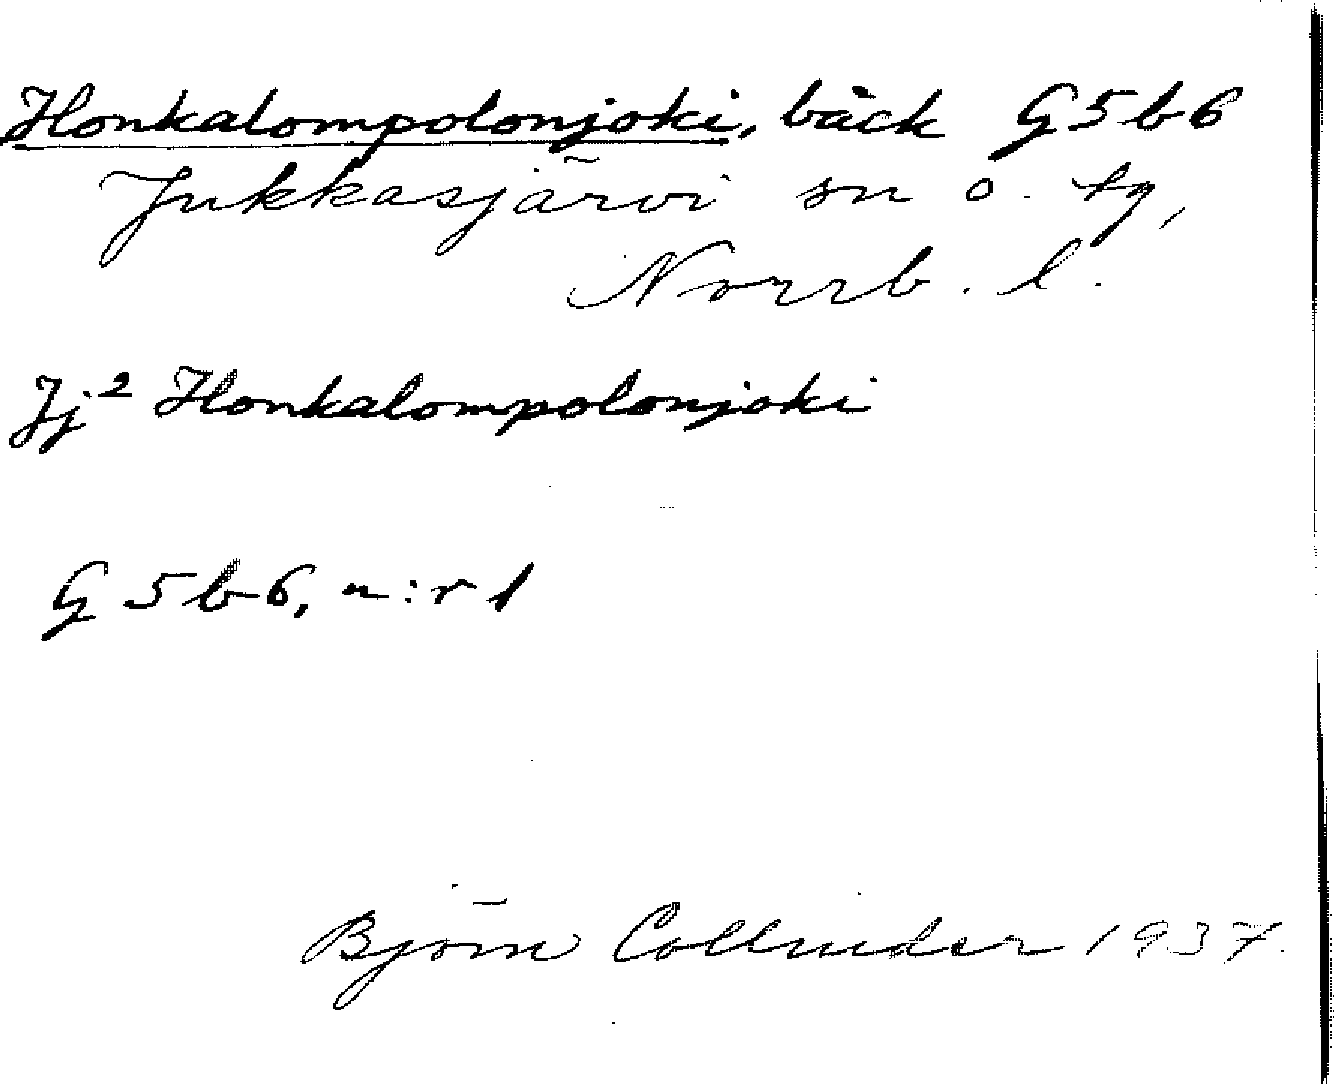 Honkalompolonjoki, bäck G5b6
Jukkasjärvi sn o. tg,
Norrb. l.
Jj² Honkalompolonjoki
G 5 b 6, n:r 1
Björn Collinder 1937.